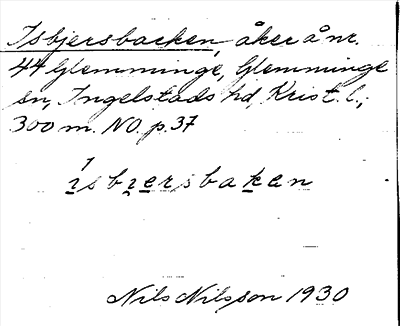 Isbjersbacken, åker å nr.
44 Glemminge, Glemminge
sn, Ingelstads hd, Krist. l.,
300 m. NO. p. 37
ısbıersbaken
Nils Nilsson 1930